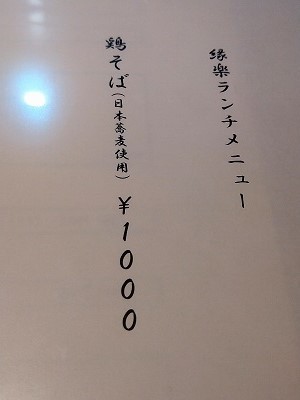 縁楽ランチメニュー
鶏そば(日本蕎麦使用)￥1000